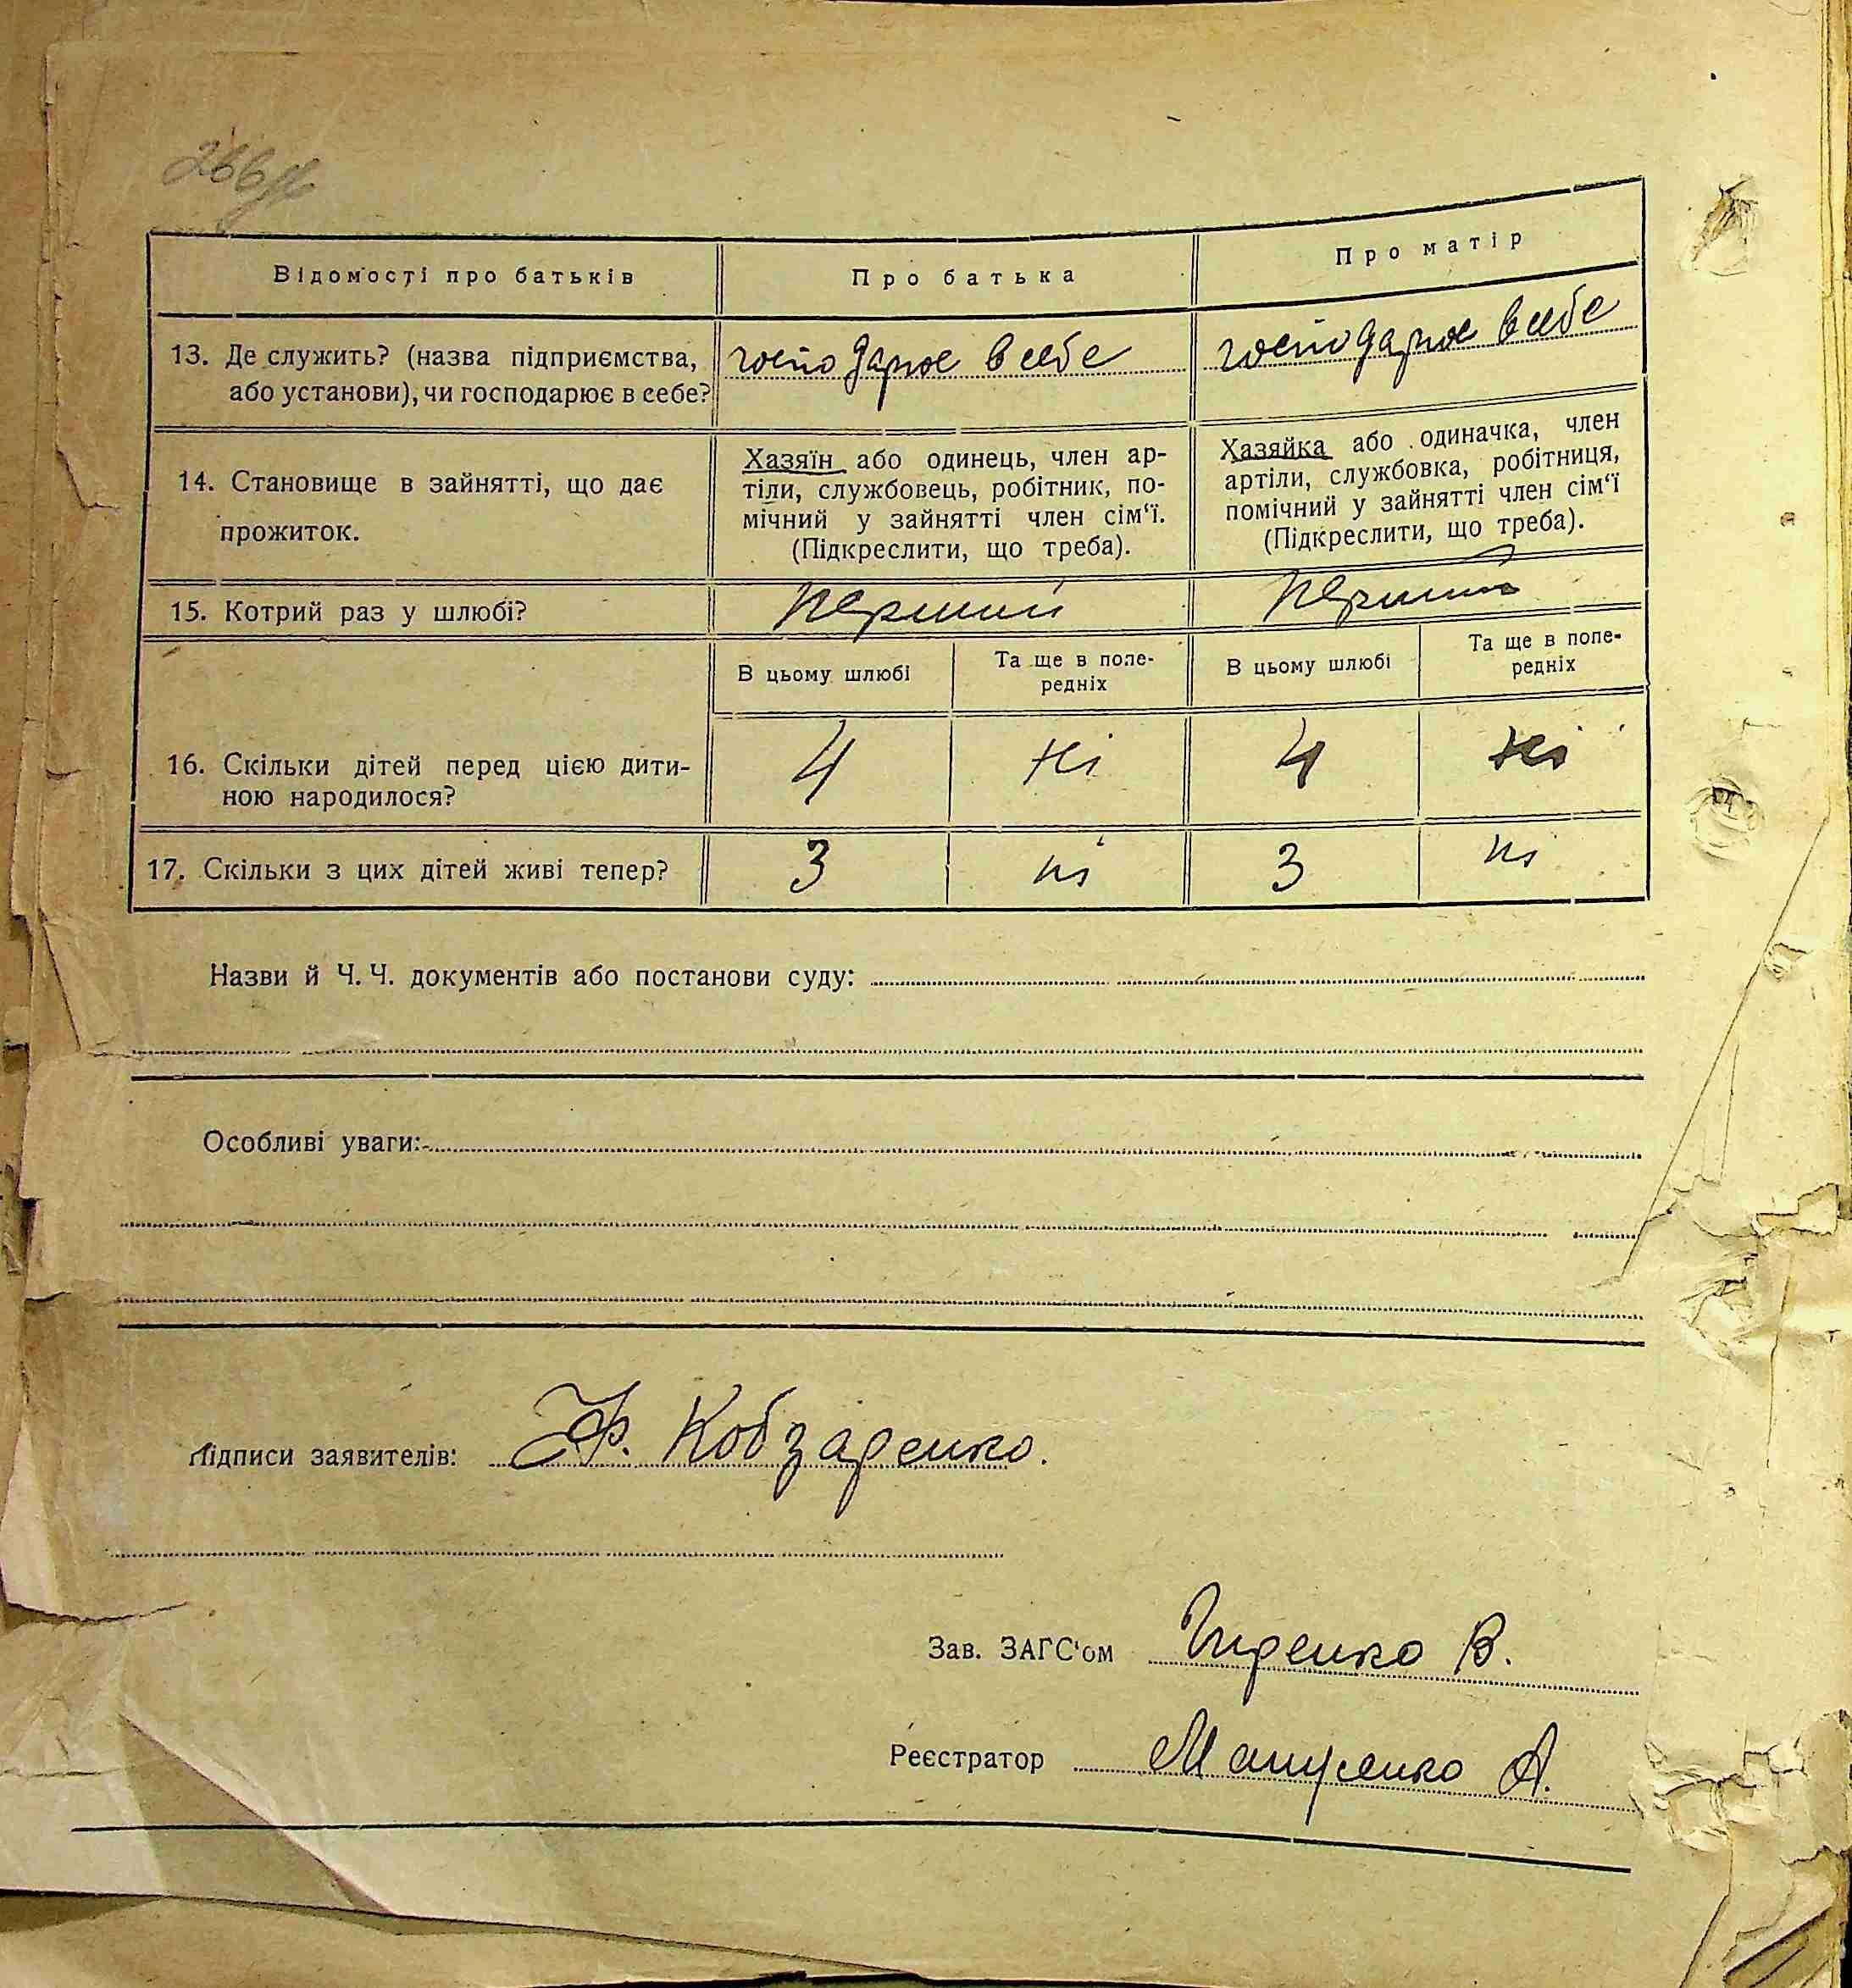 Відомості про батьків
Про батька
Про матір
13. Де служить? (назва підприємства,
або установи), чи господарює в себе?
господарює в себе
господарює в себе
14. Становище в зайнятті, що дає
прожиток.
Хазяїн або одинець, член ар-
тіли, службовець, робітник, по-
мічний у зайнятті член сім‘ї.
(Підкреслити, що треба).
Хазяйка або одиначка, член
артіли, службовка, робітниця,
помічний у зайнятті член сім‘ї
(Підкреслити, що треба).
15. Котрий раз у шлюбі?
перший
перший
В цьому шлюбі
Та ще в попе-
редніх
В цьому шлюбі
Та ще в попе-
редніх
16. Скільки дітей перед цією дити-
ною народилося?
4
ні
4
ні
17. Скільки з цих дітей живі тепер?
3
ні
3
ні
Назви й Ч. Ч. документів або постанови суду:
Особливі уваги:
Підписи заявителів: Ф. Кобзаренко.
Зав. ЗАГС‘ом В.
Реєстратор А.